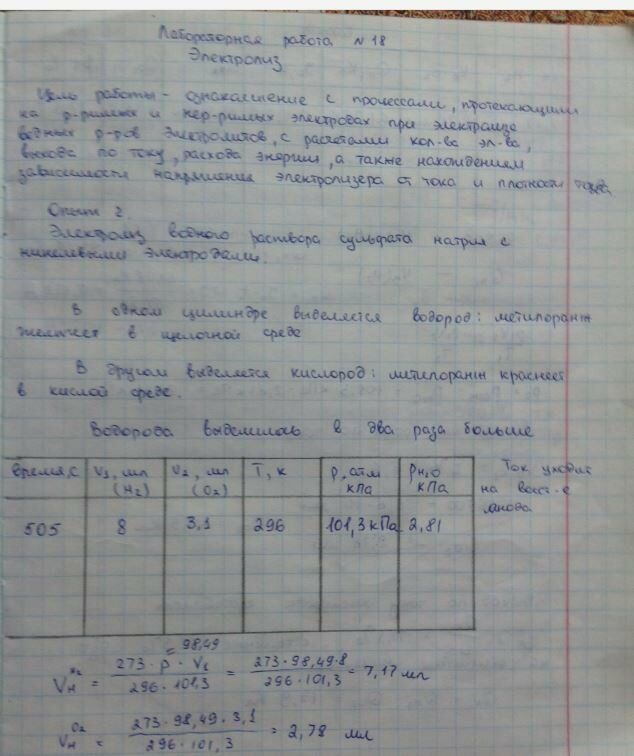 Лабораторная работа N 18
Электролиз
Цель работы - ознакомление с процессами, протекающими
на р-римых и нер-римых электродах при электролизе
водных р-ров электролитов, с расчетами кол-ва эл-ва,
выхода по току, расхода энергии, а также нахождением
зависимости напряжения электролизера от тока и плотности тока
Опыт 2.
Электролиз водного раствора сульфата натрия с
никелевыми электродами.
В одном цилиндре выделяется водород: метилоранж
желтеет в щелочной среде
В другом выделяется кислород: метилоранж краснеет
в кислой среде.
Водорода выделилось в два раза больше
Время, с V₁, мл (H₂) V₂, мл (O₂) T, к P, атм кПа PH₂O кПа
505 8 3,1 296 101,3 кПа 2,81
Ток уходит
на
анода
= 98,49
Vн H₂ = 273 · P · V₁ / 296 · 101,3 = 273 · 98,49 · 8 / 296 · 101,3 = 7,17 мл
Vн O₂ = 273 · 98,49 · 3,1 / 296 · 101,3 = 2,78 мл